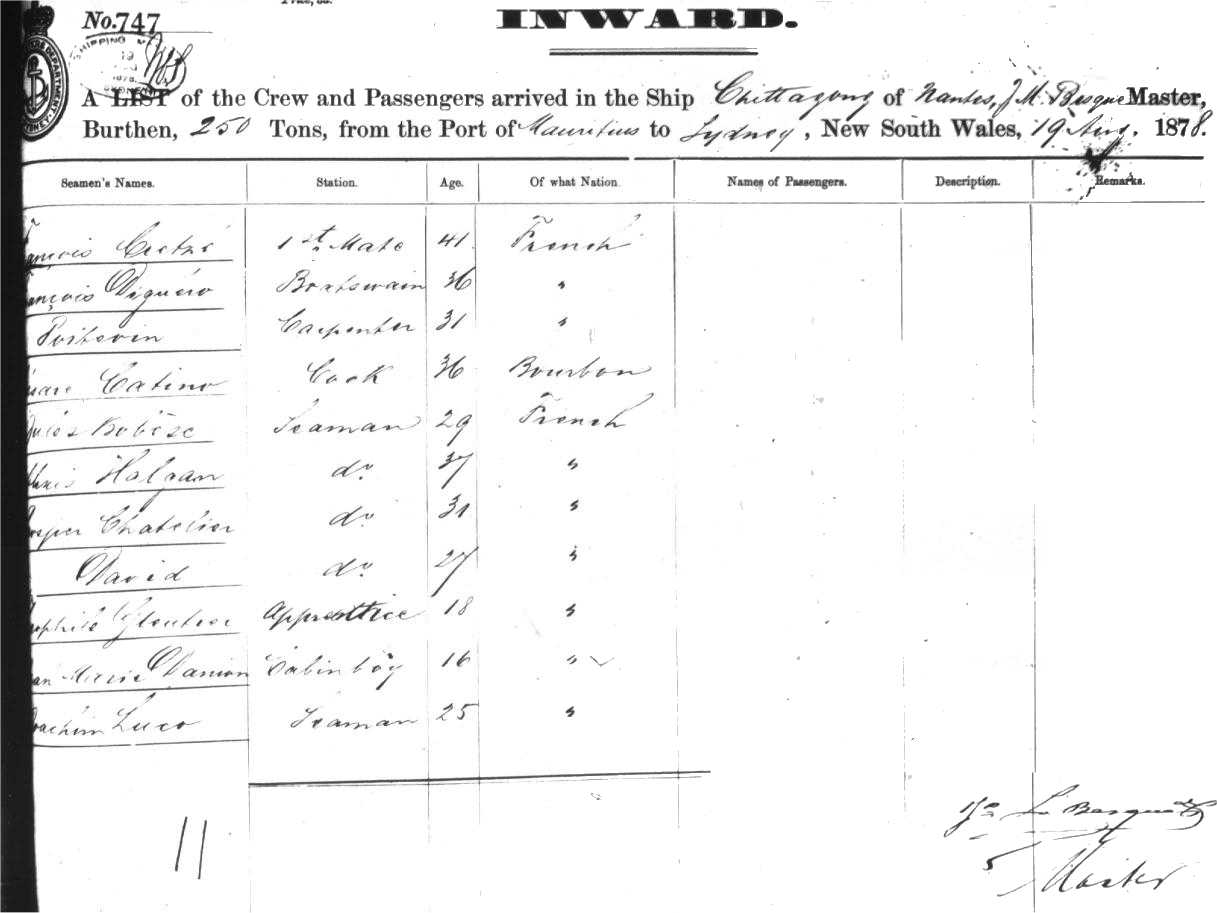 No. 747
INWARD.
A LIST of the Crew and Passengers arrived in the Ship Chittagong of Nantes, J. M. Besque Master,
Burthen, 250 Tons, from the Port of Mauritius to Sydney, New South Wales, 19 Aug. 1878.
Seamen's Names. Station. Age. Of what Nation. Names of Passengers. Description. Remarks.
François 1st Mate 41 French
ançois Diguéro Boatswain 36 "
Poitevin Carpenter 31 "
Catino Cook 36 Bourbon
Seaman 29 French
Halgan do. 37 "
osper Chatelier do. 31 "
David do. 27 "
ophile Apprentice 18 "
an Marie Danion Cabin boy 16 "
oachim Luco Seaman 25 "
11
Master